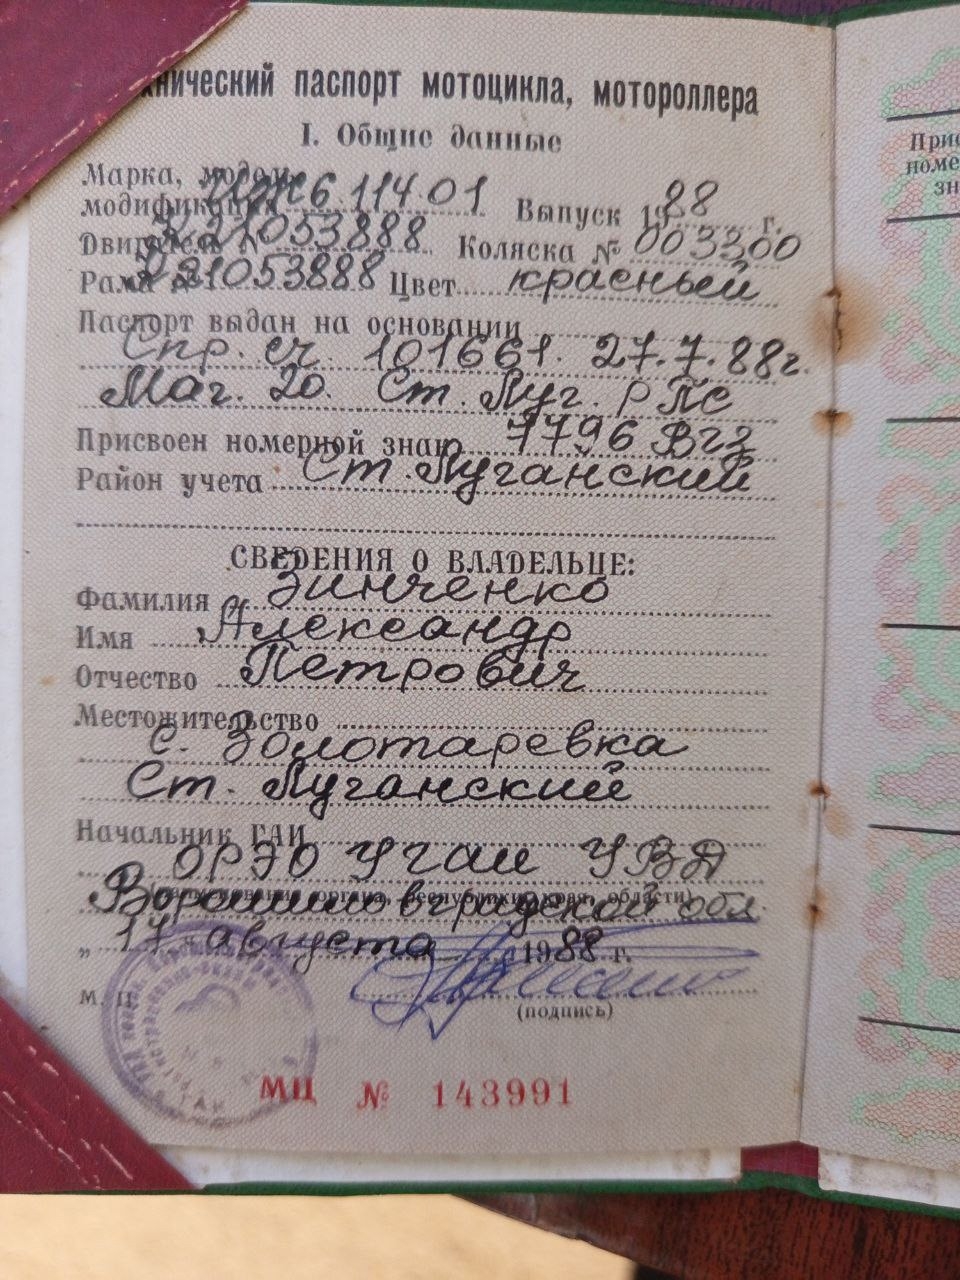 хнический паспорт мотоцикла, мотороллера
I. Общие данные
Марка, модель,
модификация ИЖ6.114.01 Выпуск 1988 г.
Двигатель № 21053888 Коляска № 003300
Рама № 21053888 Цвет красный
Паспорт выдан на основании
Спр. сч. 101661. 27.7.88г.
Маг. 20. Ст. Луг. РПС
Присвоен номерной знак 7796 ВГЗ
Район учета Ст. Луганский
СВЕДЕНИЯ О ВЛАДЕЛЬЦЕ:
Фамилия Зинченко
Имя Александр
Отчество Петрович
Местожительство
с. Золотаревка
Ст. Луганский
Начальник ГАИ
ОРЭО УГАИ УВД
(наименование органа, республики, края, области)
Ворошиловградской обл.
„ 17 " августа 1988 г.
М. П.
(подпись)
МЦ № 143991
Прис
номе
зн